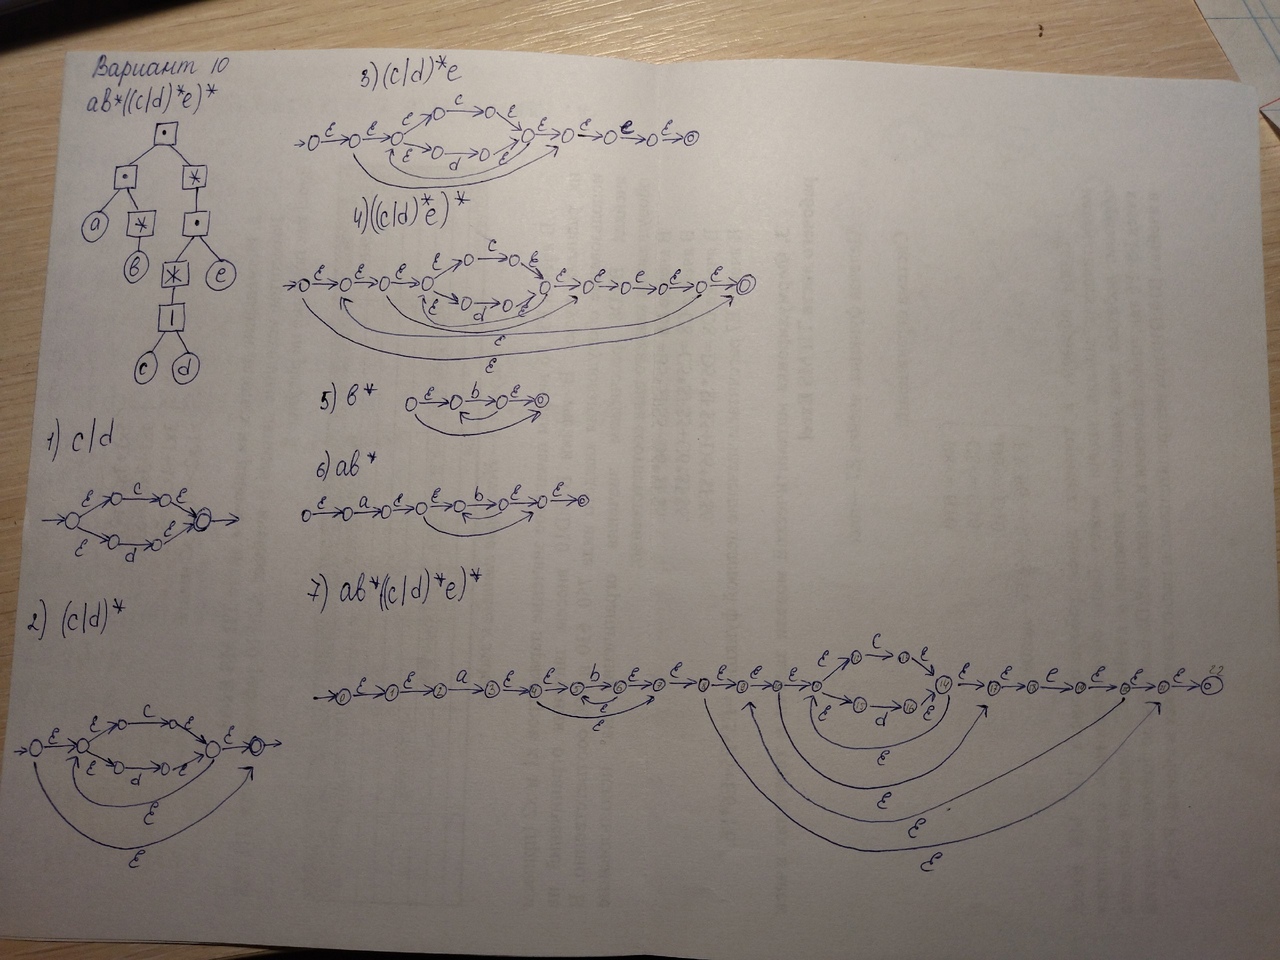 Вариант 10
ab*((c/d)*e)*
•
•
*
a
*
•
b
*
e
|
c
d
1) c/d
ε c ε
ε d ε
2) (c/d)*
ε ε c ε ε
ε d ε
ε
ε
3) (c/d)*e
ε ε ε c ε ε ε e ε
ε d ε
4) ((c/d)*e)*
ε ε ε ε c ε ε ε e ε ε
ε d ε
ε
ε
5) b*
ε b ε
6) ab*
ε a ε ε b ε ε
7) ab*((c/d)*e)*
ε ε a ε ε b ε ε ε ε ε ε ε c ε ε ε e ε ε ε
0 1 2 3 14 22
ε ε ε d ε
ε
ε
ε
ε